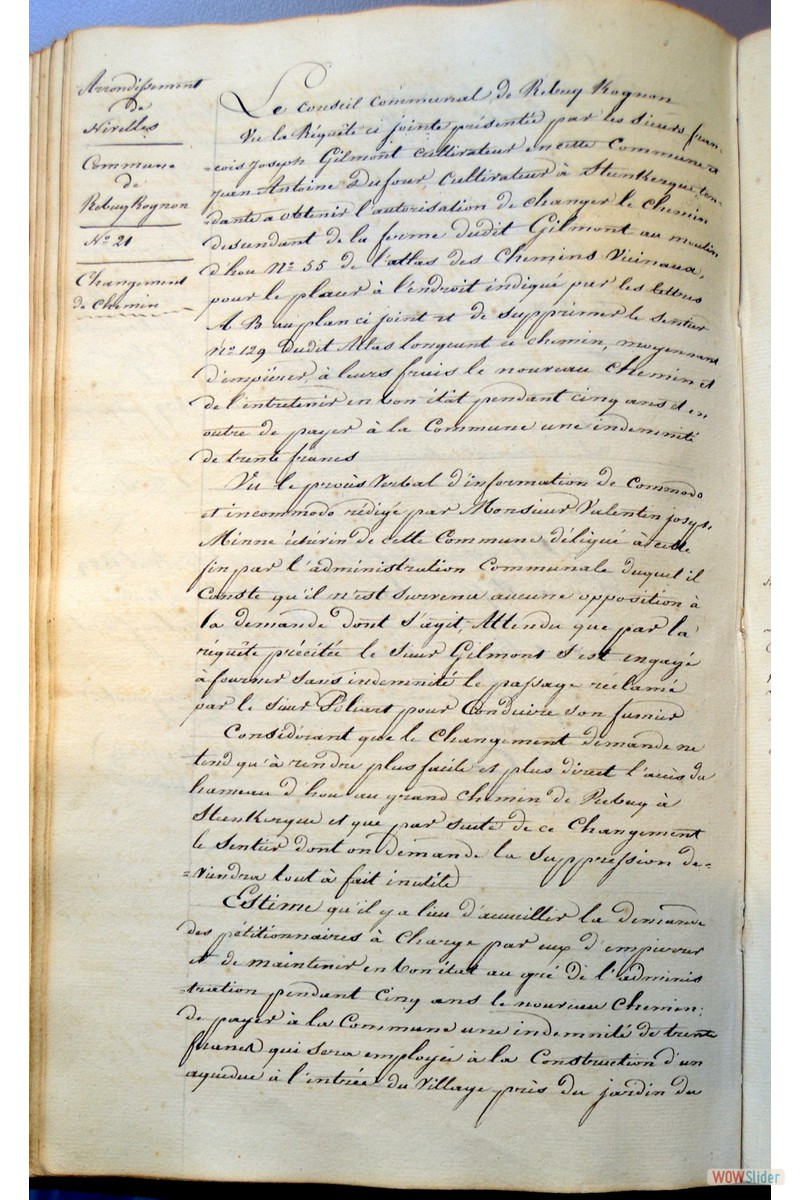 Arrondissement
de
Nivelles
Commune
de
Rebecq Rognon
N° 21
Changement
de chemin
Le conseil communal de Rebecq Rognon
Vu la Réquête ci jointe présentée par les sieurs fran-
=cois Joseph Gilmont cultivateur en cette Commune et
Jean Antoine Dufour, Cultivateur à Steenkerque, ten-
=dante a obtenir l'autorisation de changer le chemin
descendant de la ferme dudit Gilmont au moulin
d'hou N° 55 de l'atlas des Chemins Vicinaux,
pour le placer à l'endroit indiqué par les lettres
A B au plan ci joint et de supprimer le sentier
N° 129 dudit Atlas longeant ce chemin, moyennant
d'empiérer, à leurs frais le nouveau Chemin et
de l'entretenir en bon état pendant cinq ans et en
outre de payer à la Commune une indemnité
de trente francs
Vu le procès Verbal d'information de Commodo
et incommodo rédigé par Monsieur Valentin joseph
Minne échevin de cette Commune délégué à cette
fin par l'administration Communale duquel il
Conste qu'il n'est survenu aucune opposition à
la demande dont s'agit, Attendu que par la
réquête précitée le sieur Gilmont s'est engagé
à fournir sans indemnité le passage réclamé
par le sieur Pôliart pour Conduire son fumier
Considérant que le Changement demande ne
tend qu'à rendre plus facile et plus direct l'accès du
hameau d'hou au grand chemin de Rebecq à
Steenkerque et que par suite de ce Changement
le Sentier dont on demande la suppression de=
=viendra tout à fait inutile
Estime qu'il y a lieu d'accueiller la demande
des pétitionnaires à Charge par eux d'empierrer
et de maintenir en bon état au gré de l'adminis
=tration pendant Cinq ans le nouveau Chemin;
de payer à la Commune une indemnité de trente
francs qui sera employée à la Construction d'un
aqueduc à l'entrée du Village près du jardin du
WOWSlider